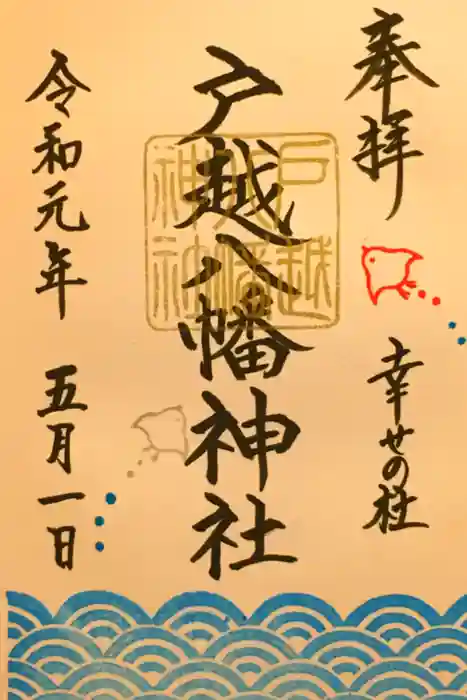 奉拝
幸せの社
戸越八幡神社
戸越
八幡
神社
令和元年 五月一日